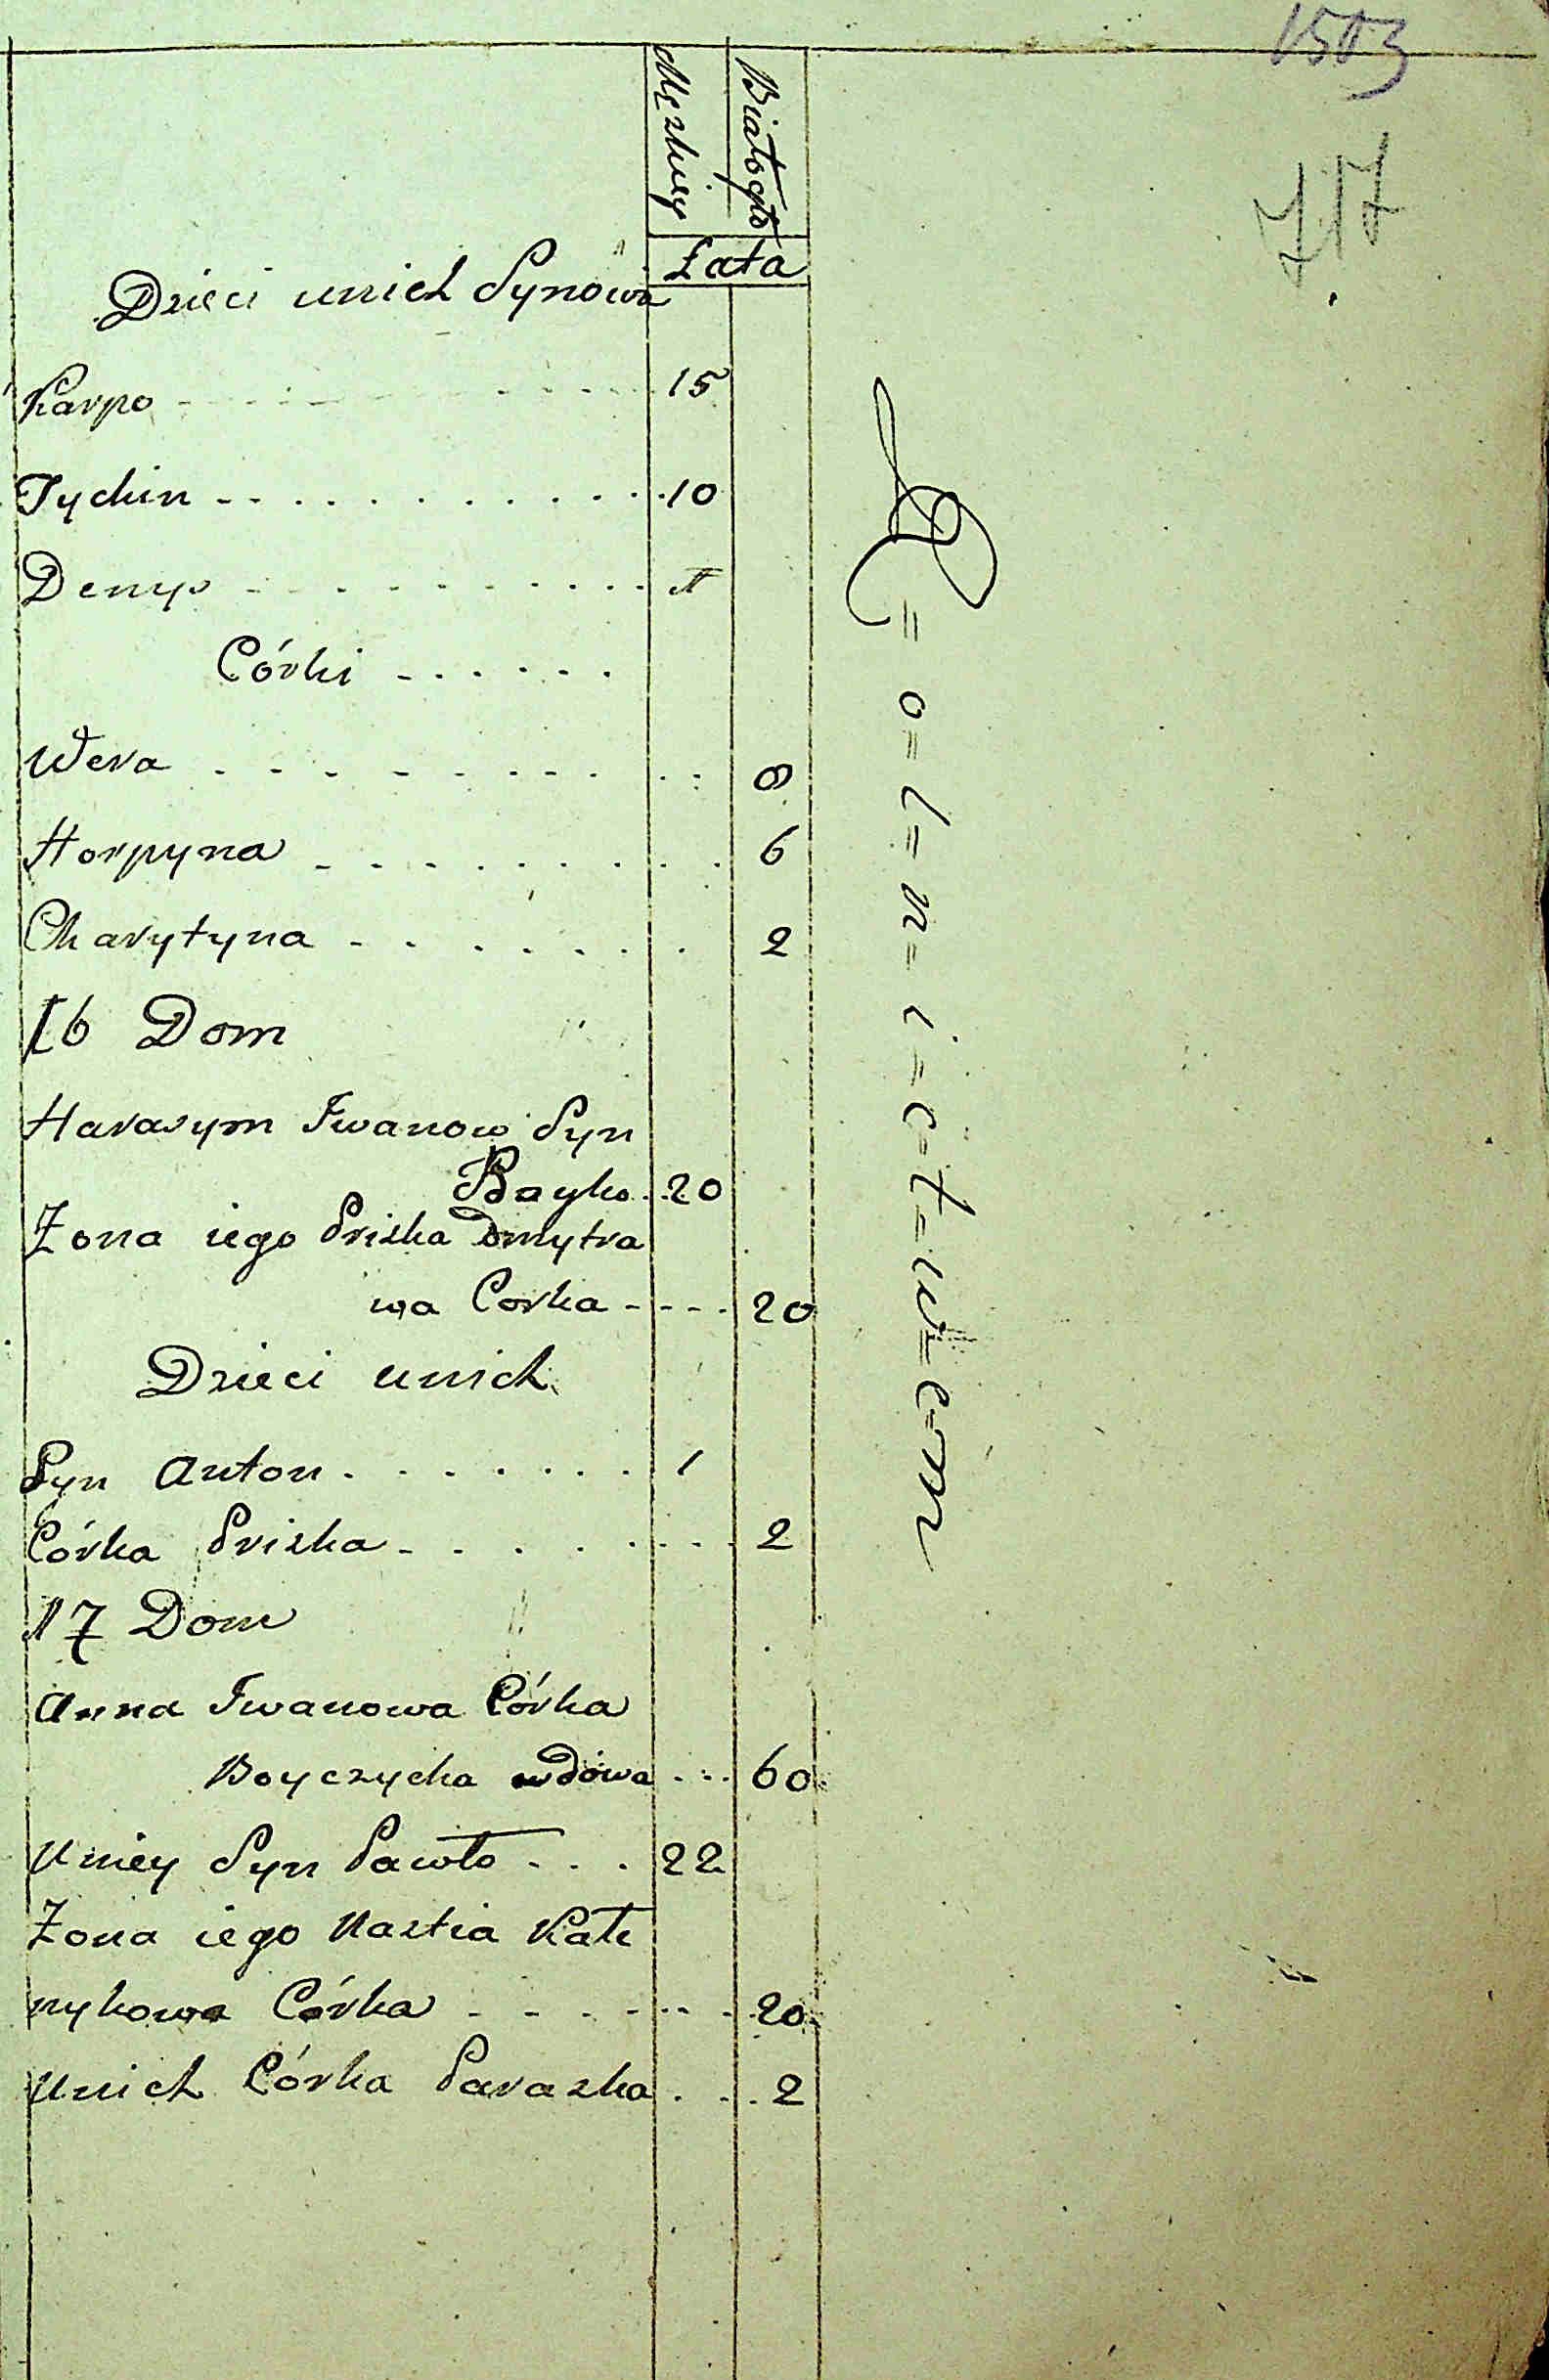 717
Męzkiey
Białogło
Łata
Dzieci unich Synowia
Karpo 15
Tychin 10
Denys 1
Córki
Wera 8
Horpyna 6
Charytyna 2
16 Dom
Harasym Iwanow Syn
Boyko 20
Zona iego Priska Dmytra
wa Corka 20
Dzieci unich
Syn Anton 1
Córka Priska 2
17 Dom
Anna Iwanowa Córka
Boyczycha wdowa 60
Uniey Syn Pawło 22
Zona iego Nastia Kate
nykowa Córka 20
Unich Córka Paraska 2
=o=l=n=i=c=t=w=e=m